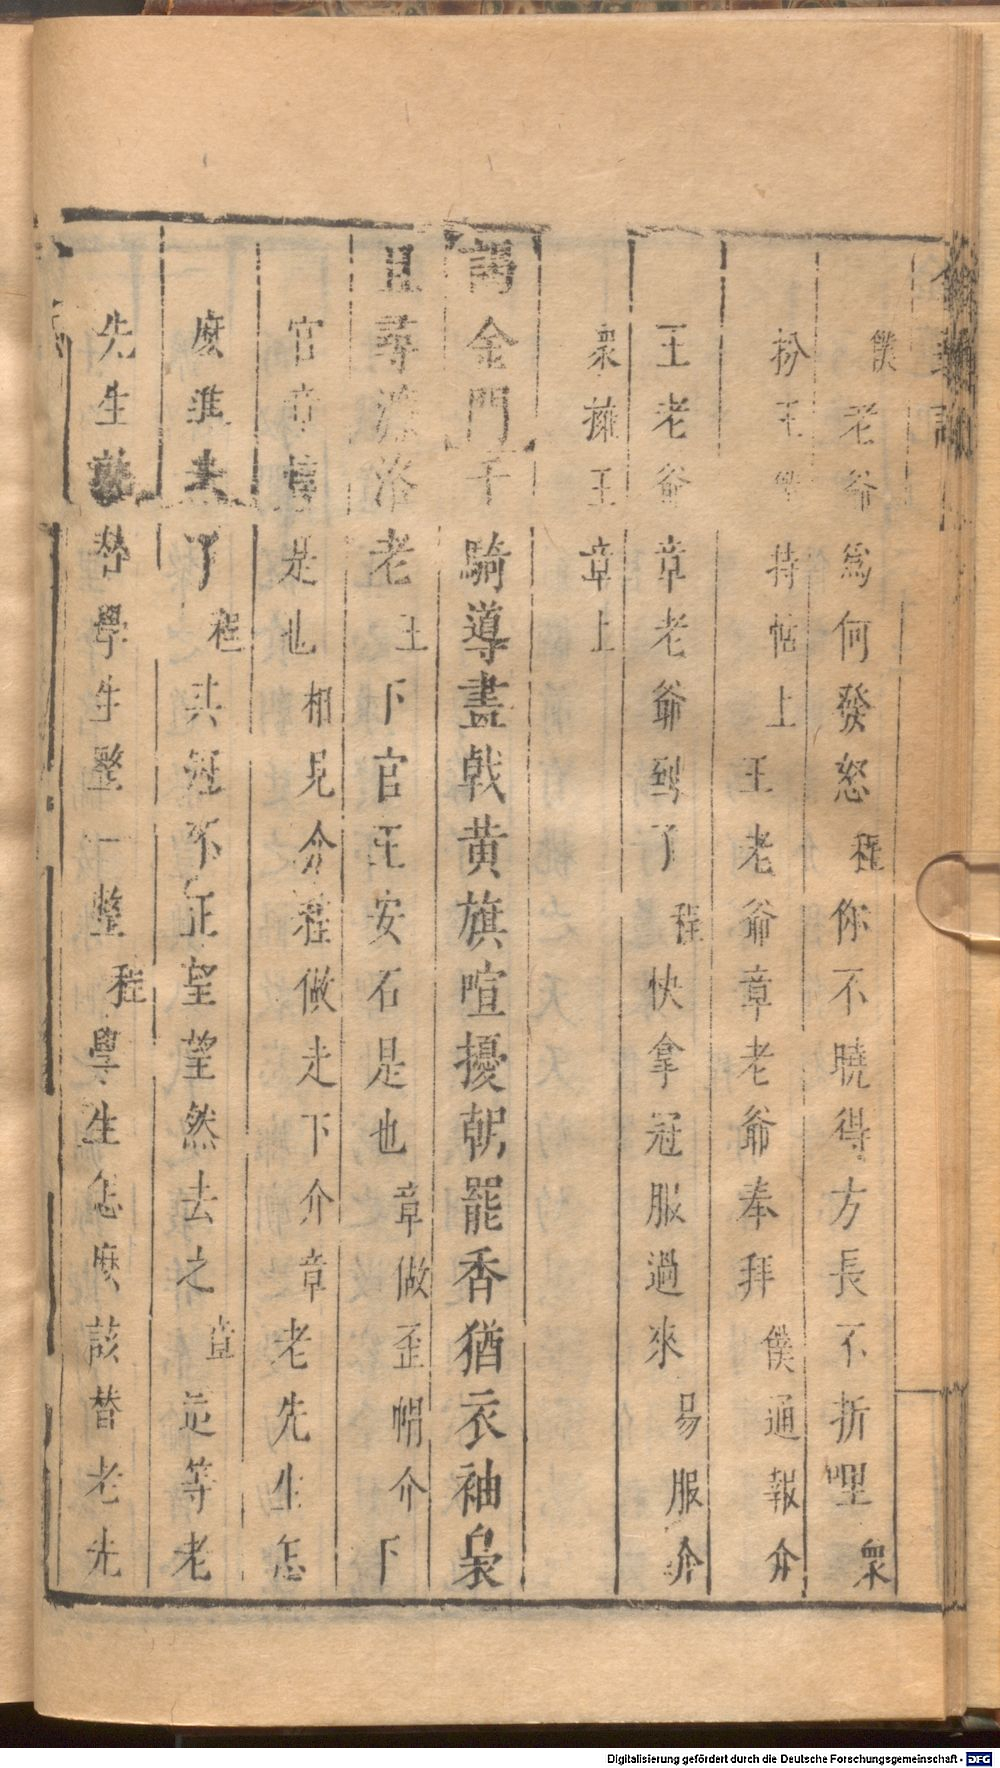 僕老爺爲何發怒程你不曉得方長不折哩衆
扮王 持帖上王老爺章老爺奉拜僕通報介
王老爺章老爺到了程快拿冠服過來易服介
衆擁王章上
謁金門千騎導畫戟黄旗喧擾朝罷香猶衣袖裊
且尋 洛老王下官王安石是也章做歪帽介下
官章惇是也相見介程做走下介章老先生怎
麽進去了程其冠不正望望然去之章這等老
先生就替學生整一整程學生怎麽該替老先
Digitalisierung gefördert durch die Deutsche Forschungsgemeinschaft - DFG